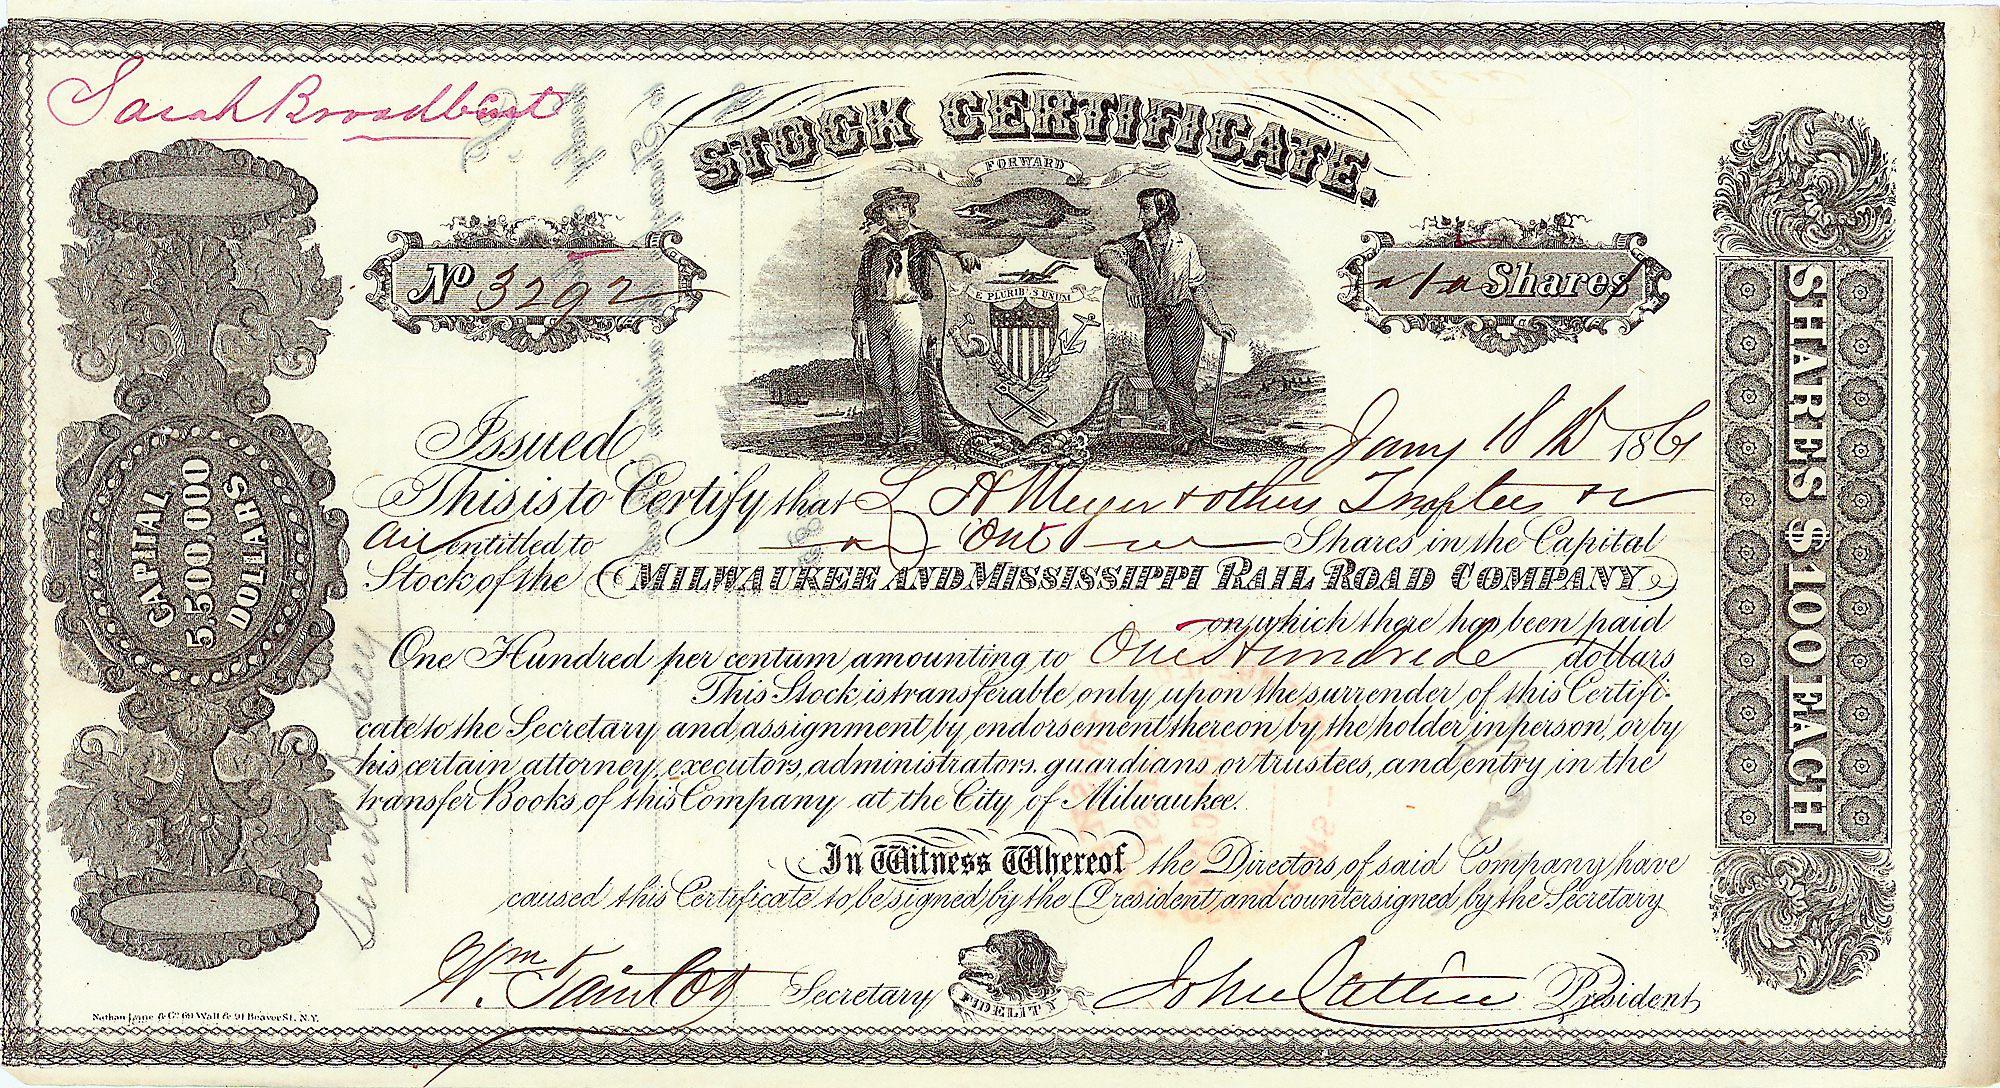 Sarah Broadbent
STOCK CERTIFICATE.
FORWARD
No 3292
1 Shares
E PLURIBUS UNUM
CAPITAL
5,500,000
DOLLARS
SHARES $100 EACH
Issued Jany 18th 1861
This is to Certify that L H Meyer & others Trustees
are entitled to One Shares in the Capital
Stock of the MILWAUKEE AND MISSISSIPPI RAIL ROAD COMPANY
on which there has been paid
One Hundred per centum amounting to One Hundred dollars
This Stock is transferable only upon the surrender of this Certifi-
cate to the Secretary and assignment by endorsement thereon by the holder in person, or by
his certain attorney, executors, administrators, guardians or trustees, and entry in the
transfer Books of this Company at the City of Milwaukee.
In Witness Whereof the Directors of said Company have
caused this Certificate to be signed by the President and countersigned by the Secretary
Wm Taintor Secretary
FIDELITY
John Catlin President
Nathan Lane & Co 69 Wall & 91 Beaver St. N.Y.